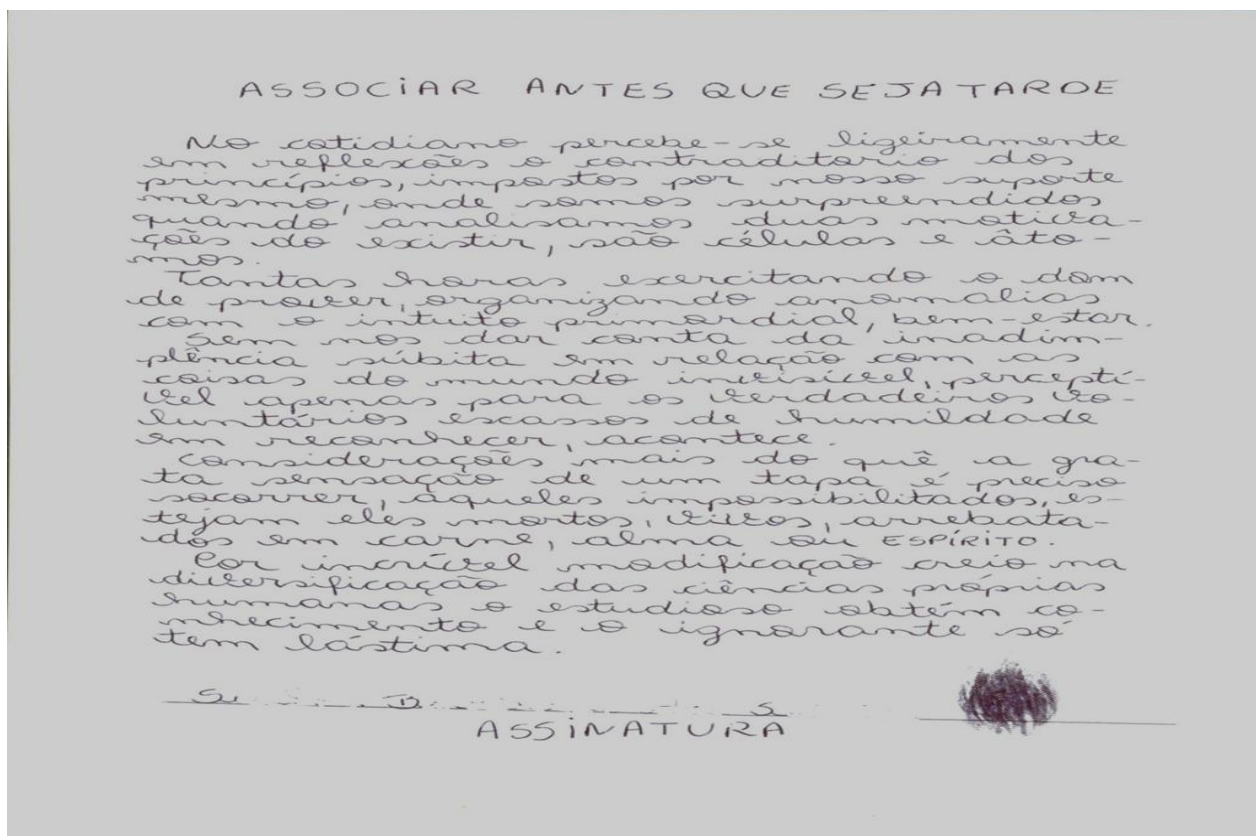 ASSOCIAR ANTES QUE SEJA TARDE
No cotidiano percebe-se ligeiramente
em reflexões o contraditorio dos
princípios, impostos por nosso suporte
mesmo, onde somos surpreendidos
quando analisamos duas motiva-
ções do existir, são células e âto-
mos.
Tantas horas exercitando o dom
de prover, organizando anomalias
com o intuito primordial, bem-estar.
Sem nos dar conta da inadim-
plência súbita em relação com as
coisas do mundo invisível, perceptí-
vel apenas para os verdadeiros vo-
luntários escassos de humildade
em reconhecer, acontece.
Considerações mais do quê a gra-
ta sensação de um tapa é preciso
socorrer, àqueles impossibilitados, es-
tejam eles mortos, vivos, arrebata-
dos em carne, alma ou ESPÍRITO.
Por incrível modificação creio na
diversificação das ciências próprias
humanas o estudioso obtém co-
nhecimento e o ignorante só
tem lástima.
S D S
ASSINATURA